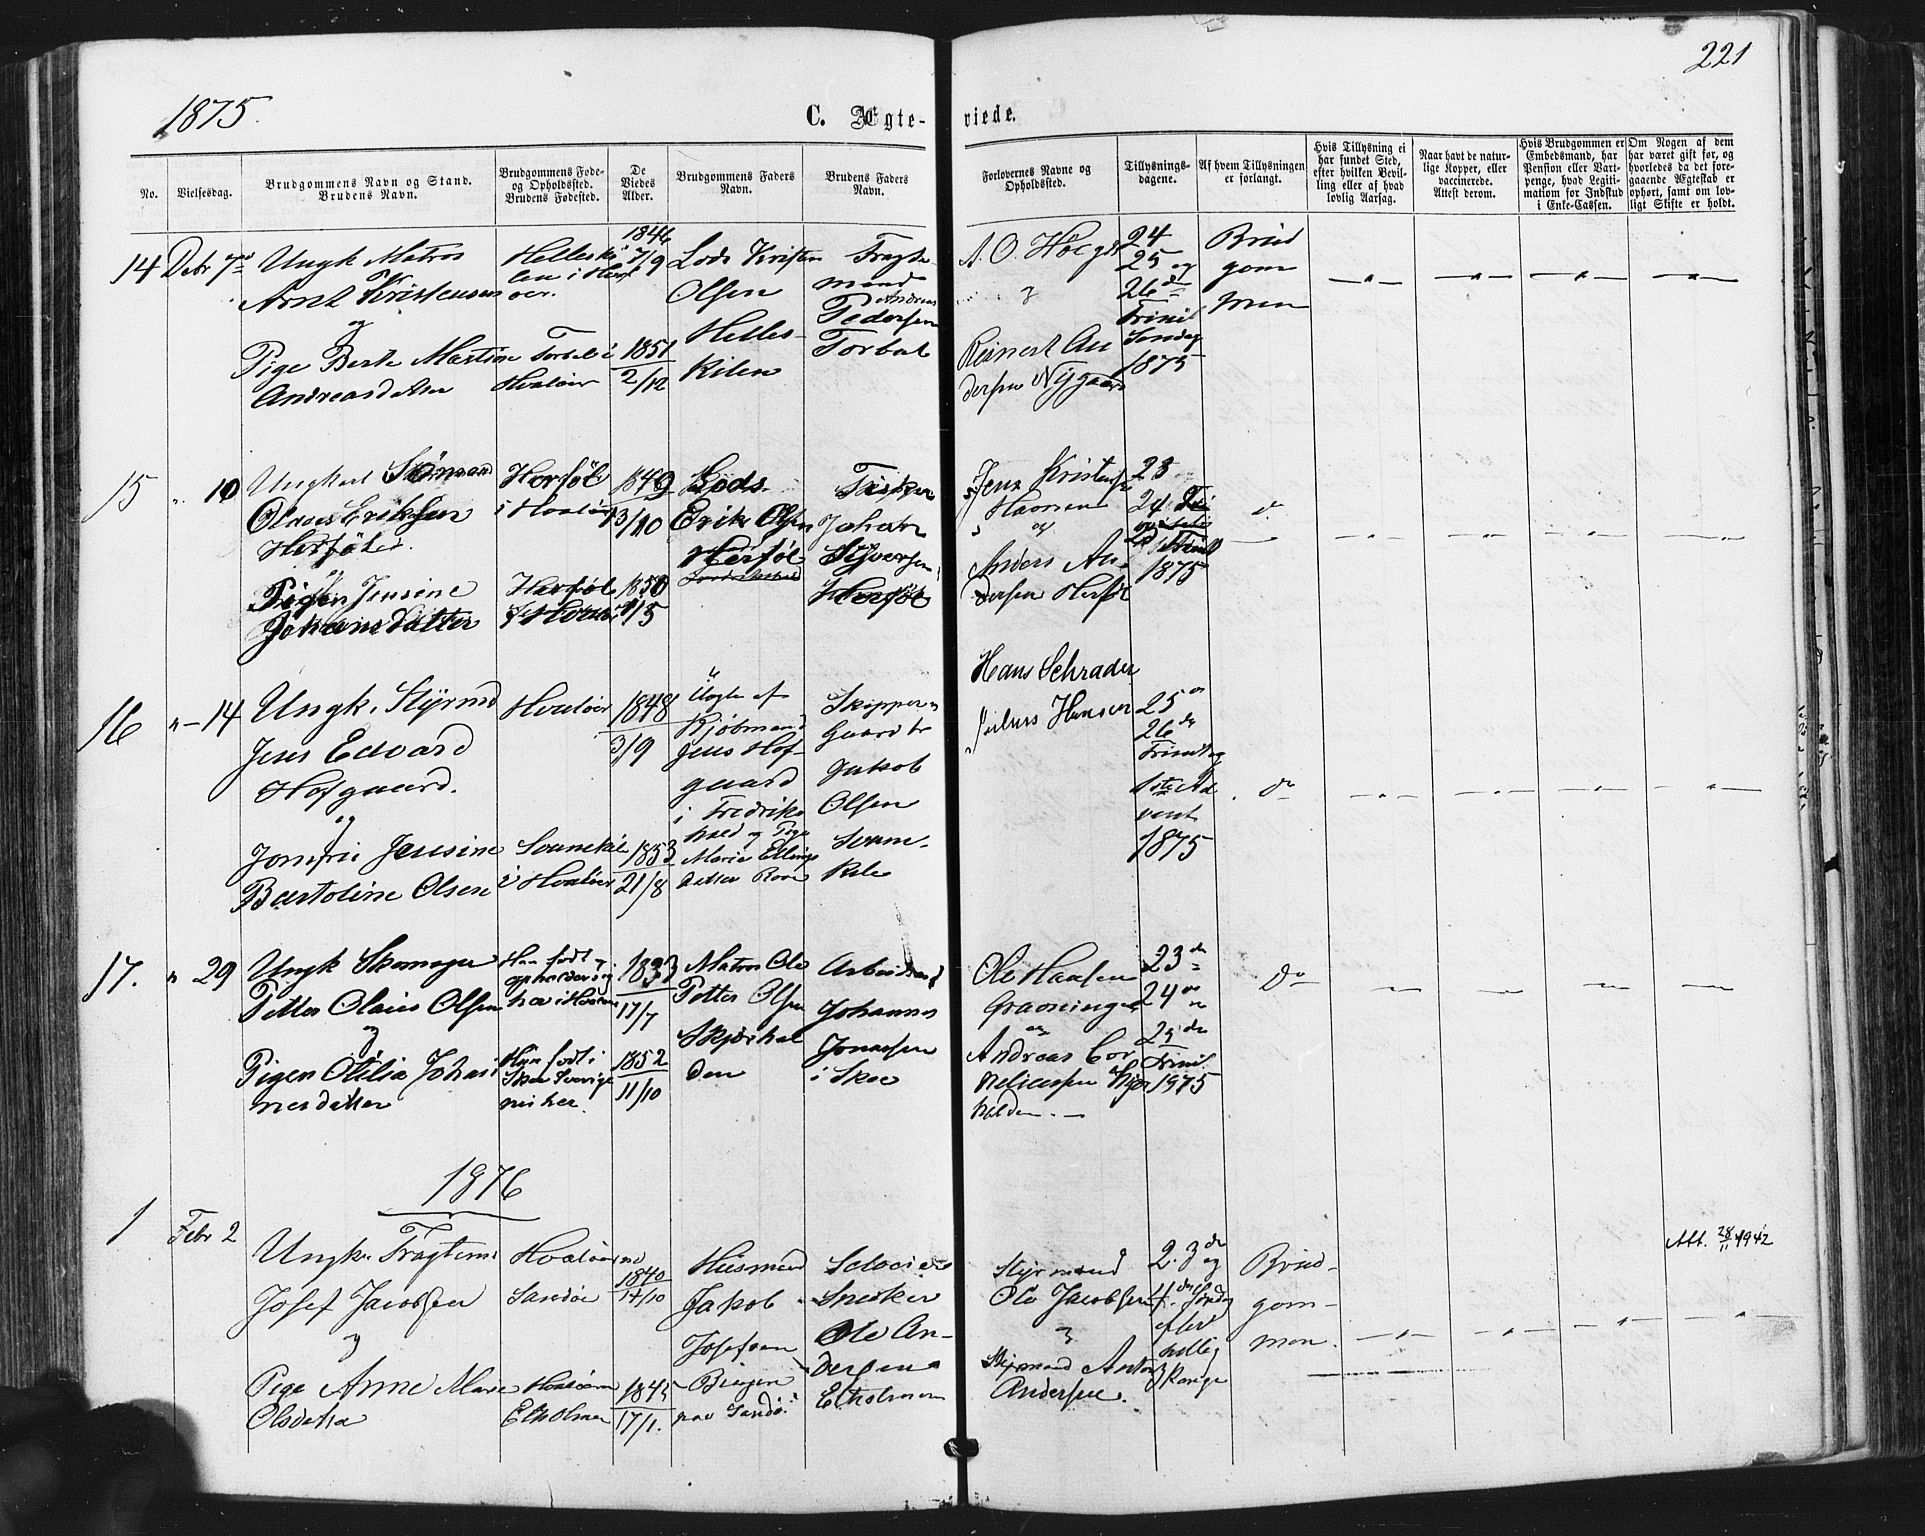 221
1875.
C. Ægte-
viede.
No.
Vielsesdag.
Brudgommens Navn og Stand.
Brudens Navn.
Brudgommens Føde-
og Opholdssted.
Brudens Fødested.
De
Viedes
Alder.
Brudgommens Faders
Navn.
Brudens Faders
Navn.
Forlovernes Navne og
Opholdssted.
Tillysnings-
dagene.
Af hvem Tillysningen
er forlangt.
Hvis Tillysning ei
har fundet Sted,
efter hvilken Bevil-
ling eller af hvad
lovlig Aarsag.
Naar havt de natur-
lige Kopper, eller
vaccinerede.
Attest derom.
Hvis Brudgommen er
Embedsmand, har
Pension eller Vart-
penge, hvad Legiti-
mation for Indskud
i Enke-Cassen.
Om Nogen af dem
har været gift før, og
hvorledes da det fore-
gaaende Ægteskab er
ophørt, samt om lov-
ligt Skifte er holdt.
14
Debr 7de
Ungk Matros
Arnt Kristensen
og
Pige Berte Martine
Andreasdatter
Helleski
len i Hval
øer.
Torbal i
Hvaløer
1846
7/9
1851
2/12
Lods Kristen
Olsen
Helles-
Kilen
Fragte
mand
Andreas
Pedersen
Torbal
A. O. Høegh
Reinert An
dersen Nygaard
24
25 og
26de
Trinit
Søndag
1875
Brud
gom
men
15
" 10
Ungkarl Sømand
Claus Eriksen
Herføl
og
Pigen Jensine
Johansdatter
Herføl
i Hvaløer
Herføl
i Hvaløer
1849
13/10
1850
Lods
Erik Olsen
Herføl
Fisker
Johan
Syversen
Herføl
Jens Kristensen
Havnen
og
Anders An-
dersen Herføl
23
24
1875
do
16
" - 14
Ungk. Styrmd
Jens Edvard
Hofgaard.
og
Jomfru Jensine
Bertoline Olsen
Hvaløer
Svanekil
i Hvaløer
1848
3/9
1853
21/8
Uægte af
Kjøbmand
Jens Hof-
gaard
i Fredriks
hald og Pige
Marie Ellings
datter Rove
Skipper og
Gaardbr
Jakob
Olsen
Svane-
kile
Hans Schrader
Julius Hansen
25de
26de
Trinit og
1ste Ad
vent
1875
do
17.
" 29
Ungk Skomager
Petter Olaus Olsen
og
Pigen Otilia Johan
nesdatter
Han født og
opholder sig
her i Hvaløer
Hun født i
Skee Sverige
nu her.
1833
17/7
1852
11/10
Matros Ole
Petter Olsen
Skjærhal
den
Arbeidsmd
Johannes
Jonassen
i Skee
Ole Hansen
Graaninge
og
Andreas Cor
neliussen Skjær
halden. —
23de
24de
25de
Trinit
1975
do
1876
1
Febr 2
Ungk. Fragtem
Josef Jacobsen
og
Pige Anne Marie
Olsdatter
Hvaløer
Sandøe
Hvaløer
Ekholmen
1840
14/10
1845
17/1.
Husmand
Jakob
Josefsen
Bingen
paa Sandø
Selveier
Snekker
Ole An-
dersen
Ekholmen
Styrmand
Ole Jacobsen
og
Styrmand Anton
Andersen.
2. 3de og
4de Søndag
efter
hellig
3 Konge
Brud-
gom-
men.
Att. 28/11 1942